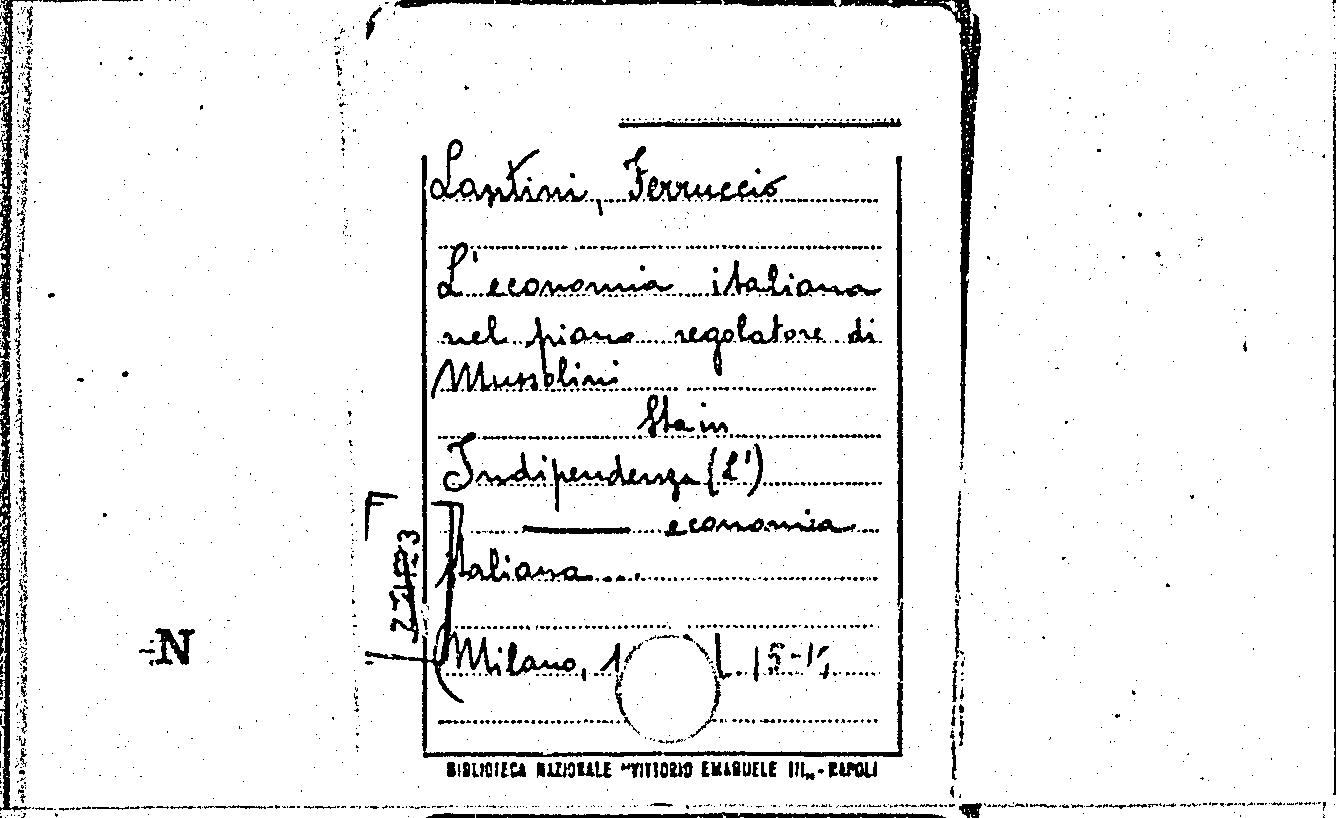 Lantini, Ferruccio
L'economia italiana
nel piano regolatore di
Mussolini
Sta in
Indipendenza (L')
economia
italiana....
Milano, 1
N
BIBLIOTECA NAZIONALE "VITTORIO EMANUELE III" - NAPOLI